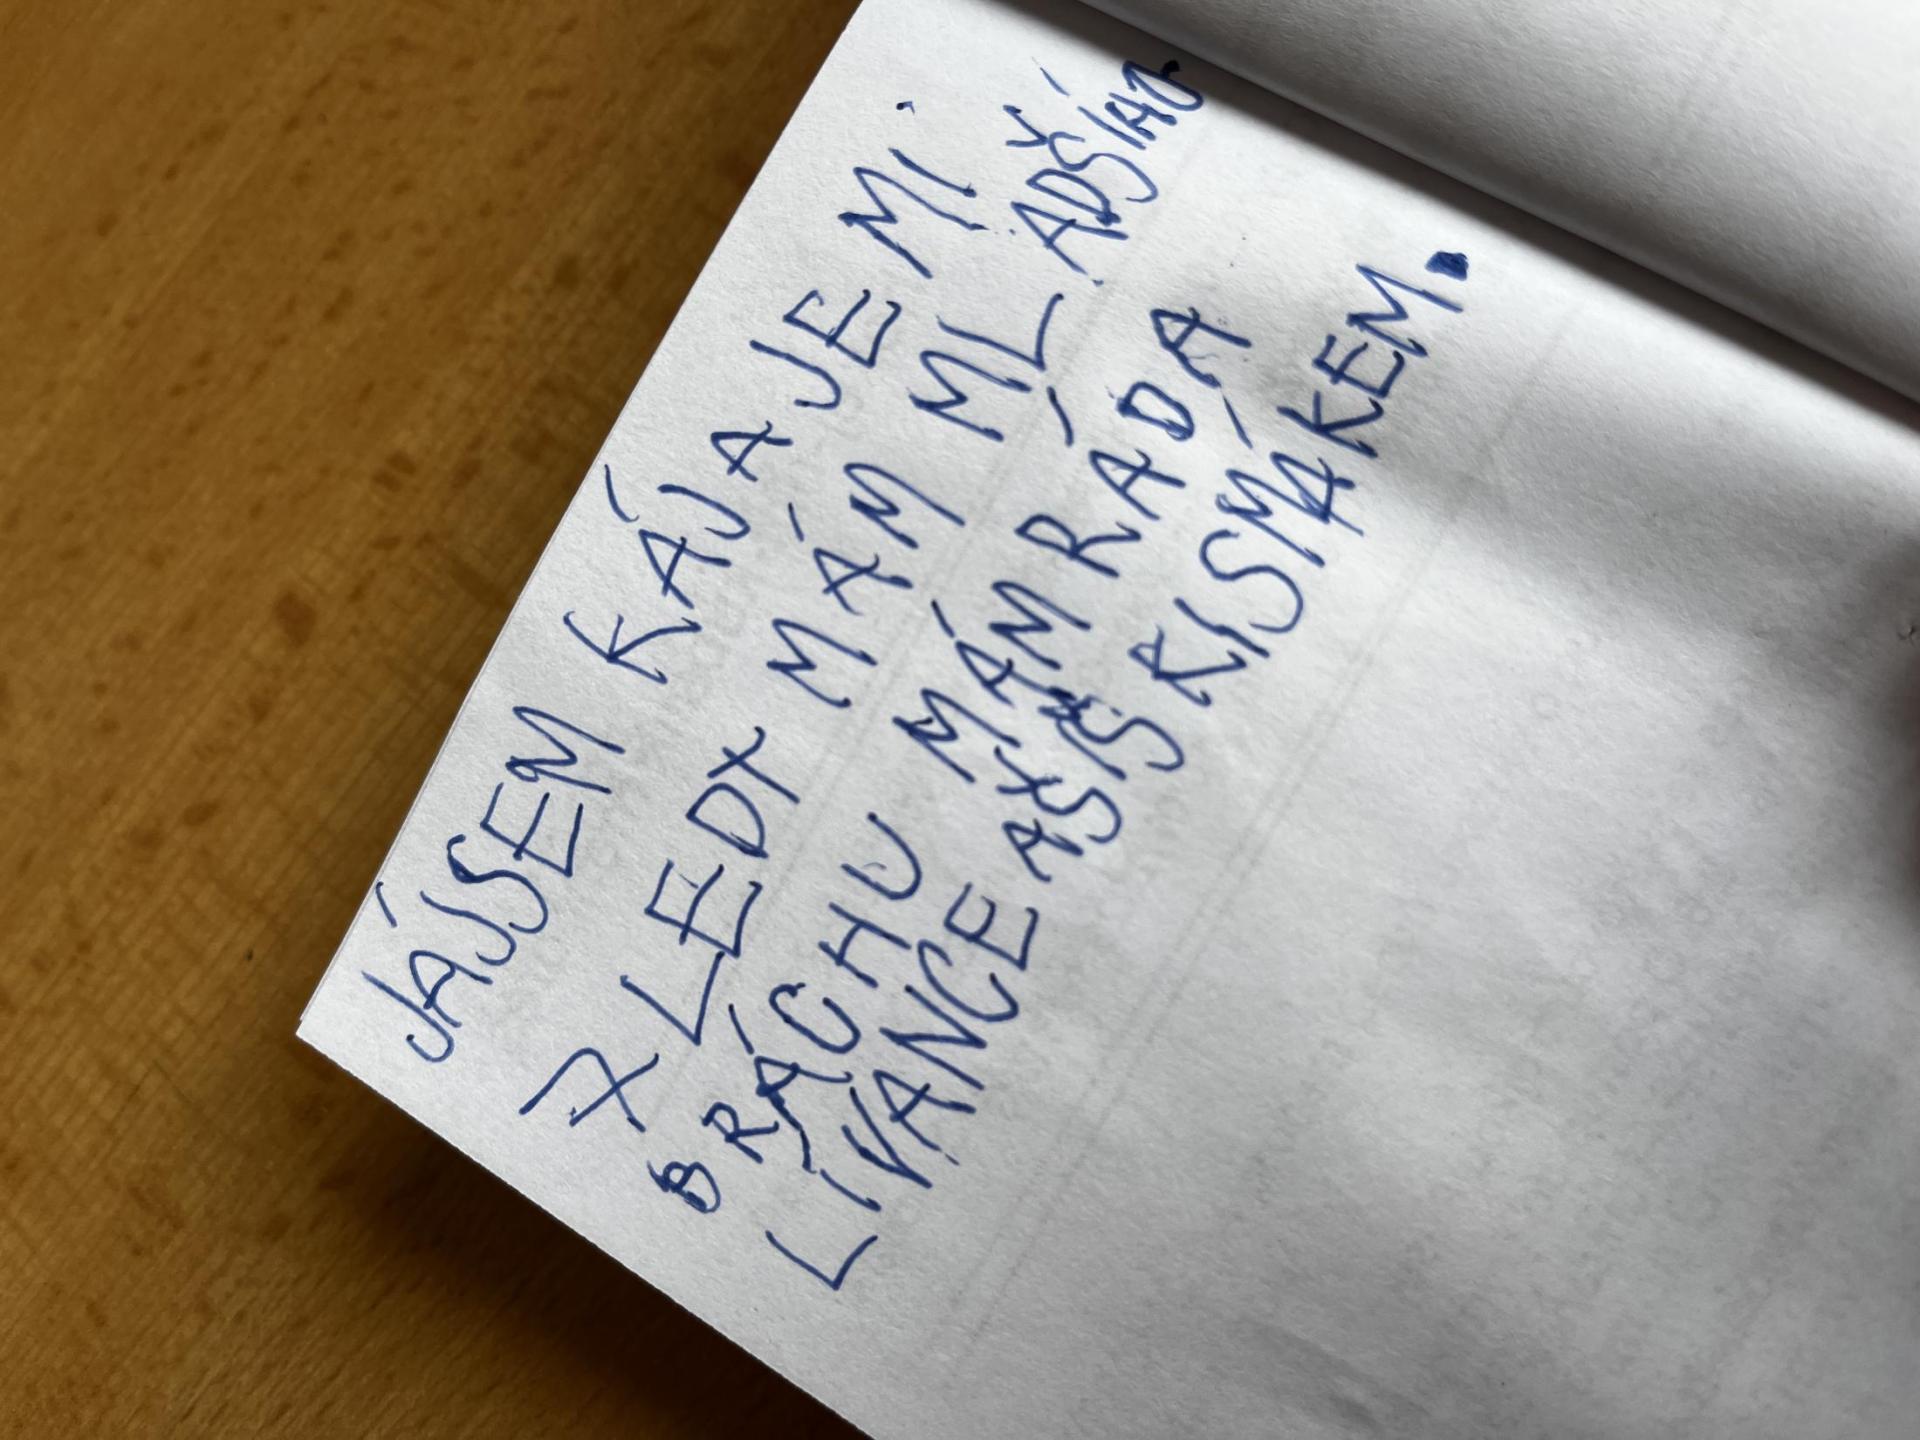 JÁ JSEM KÁJA JE MI.
7 LEDX MÁM MLADŠÍHO.
BRÁCHU MÁM RÁDA
LIVANCE ASI S KISMÁKEM.